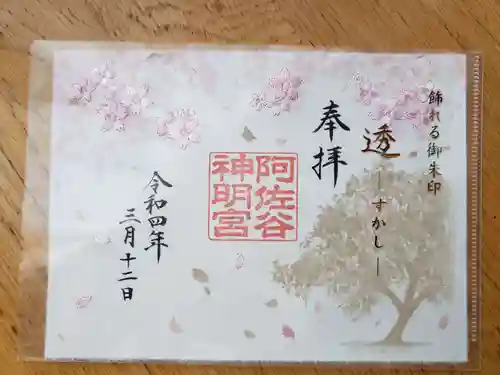 飾れる御朱印
透―すかし―
奉拝
阿佐谷
神明宮
令和四年
三月十二日